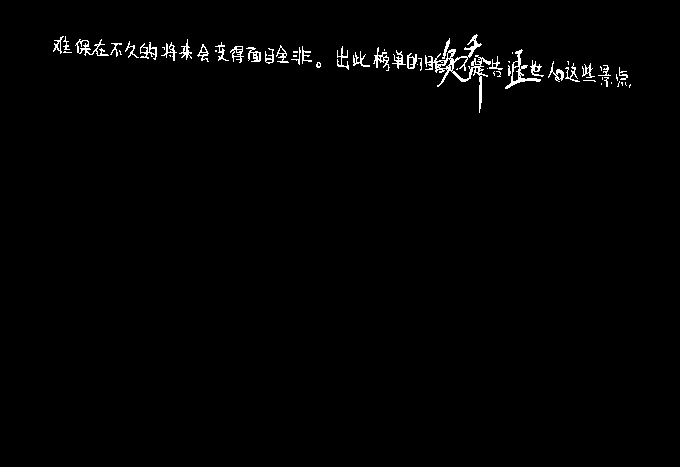 难保在不久的将来会变得面目全非。出此榜单的目的不是告诫世人这些景点